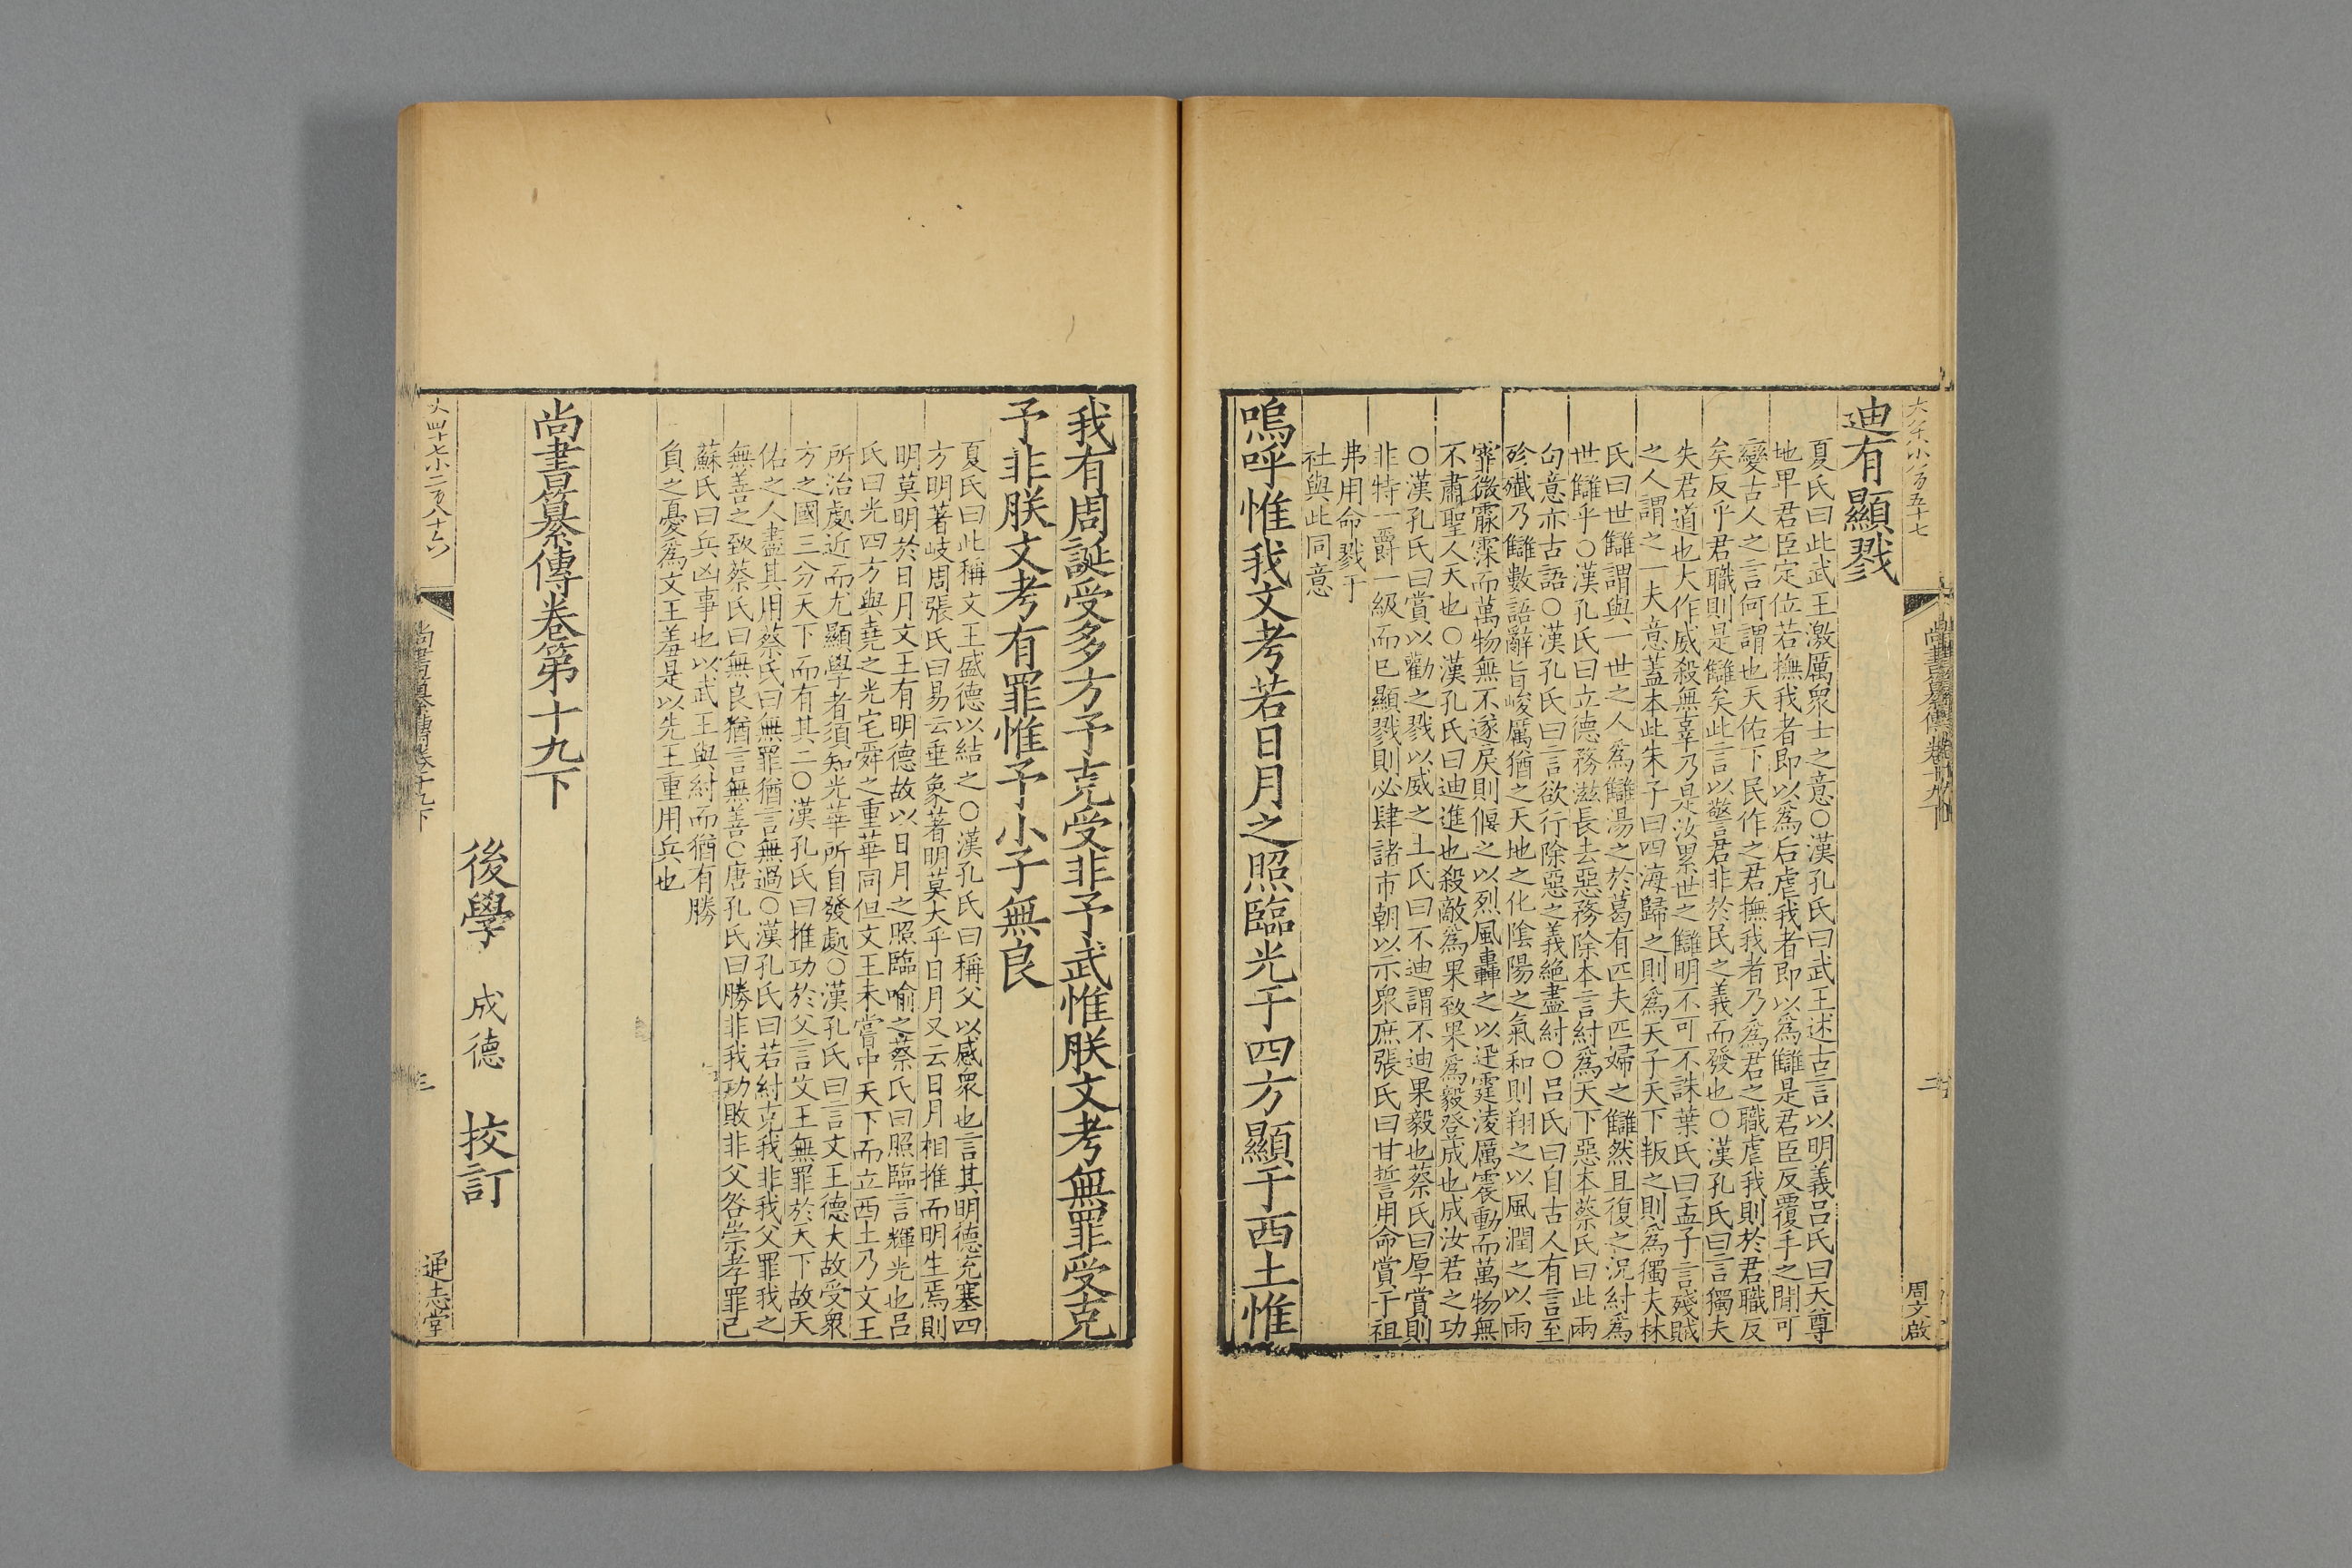 尚書纂傳卷十九下
二
周文啟
迪有顯戮
夏氏曰此武王激厲衆士之意○漢孔氏曰武王述古言以明義呂氏曰天尊
地卑君臣定位若撫我者即以爲后虐我者即以爲讎是君臣反覆手之間可
變古人之言何謂也天佑下民作之君撫我者乃爲君之職虐我則於君職反
矣反乎君職則是讎矣此言以警君非於民之義而發也○漢孔氏曰言獨夫
失君道也大作威殺無辜乃是汝累世之讎明不可不誅葉氏曰孟子言殘賊
之人謂之一夫意蓋本此朱子曰四海歸之則爲天子天下叛之則爲獨夫林
氏曰世讎謂與一世之人爲讎湯之於葛有匹夫匹婦之讎然且復之況紂爲
世讎乎○漢孔氏曰立德務滋長去惡務除本言紂爲天下惡本蔡氏曰此兩
句意亦古語○漢孔氏曰言欲行除惡之義絶盡紂○呂氏曰自古人有言至
殄殲乃讎數語辭旨峻厲猶之天地之化陰陽之氣和則翔之以風潤之以雨
霏微霡霂而萬物無不遂戾則偃之以烈風轟之以迅霆淩厲震動而萬物無
不肅聖人天也○漢孔氏曰迪進也殺敵爲果致果爲毅登成也成汝君之功
○漢孔氏曰賞以勸之戮以威之王氏曰不迪謂不迪果毅也蔡氏曰厚賞則
非特一爵一級而已顯戮則必肆諸市朝以示衆庶張氏曰甘誓用命賞于祖
弗用命戮于
社與此同意
嗚呼惟我文考若日月之照臨光于四方顯于西土惟
我有周誕受多方予克受非予武惟朕文考無罪受克
予非朕文考有罪惟予小子無良
夏氏曰此稱文王盛德以結之○漢孔氏曰稱父以感衆也言其明德充塞四
方明著岐周張氏曰易云垂象著明莫大乎日月又云日月相推而明生焉則
明莫明於日月文王有明德故以日月之照臨喻之蔡氏曰照臨言輝光也呂
氏曰光四方與堯之光宅舜之重華同但文王未嘗中天下而立西土乃文王
所治處近而尤顯學者須知光華所自發處○漢孔氏曰言文王德大故受衆
方之國三分天下而有其二○漢孔氏曰推功於父言文王無罪於天下故天
佑之人盡其用蔡氏曰無罪猶言無過○漢孔氏曰若紂克我非我父罪我之
無善之致蔡氏曰無良猶言無善○唐孔氏曰勝非我功敗非父咎崇孝罪己
蘇氏曰兵凶事也以武王與紂而猶有勝
負之憂爲文王羞是以先王重用兵也
尚書纂傳卷第十九下
後學 成德 挍訂
尚書纂傳卷十九下
三
通志堂